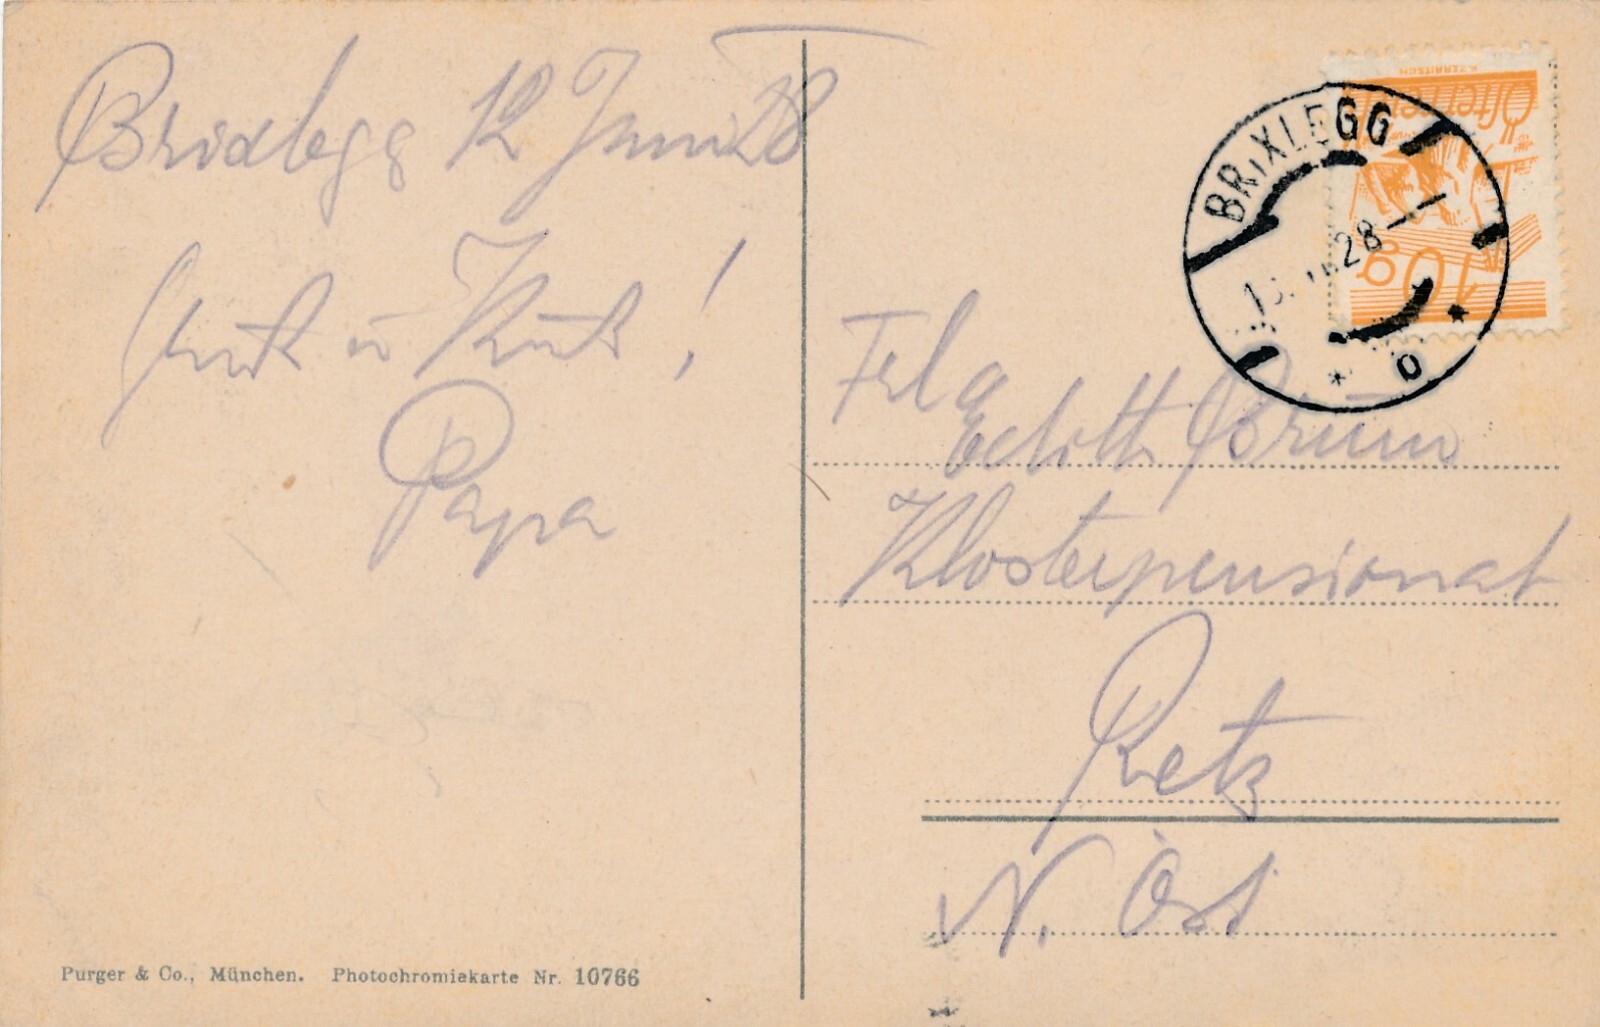 Brixlegg 12 Juni 28
Gruß u Kuß!
Papa
BRIXLEGG
28
b
Österreich
10g
Frl a
Edith Brüm
Klosterpensionat
Retz
N. Öst
Purger & Co., München. Photochromiekarte Nr. 10766